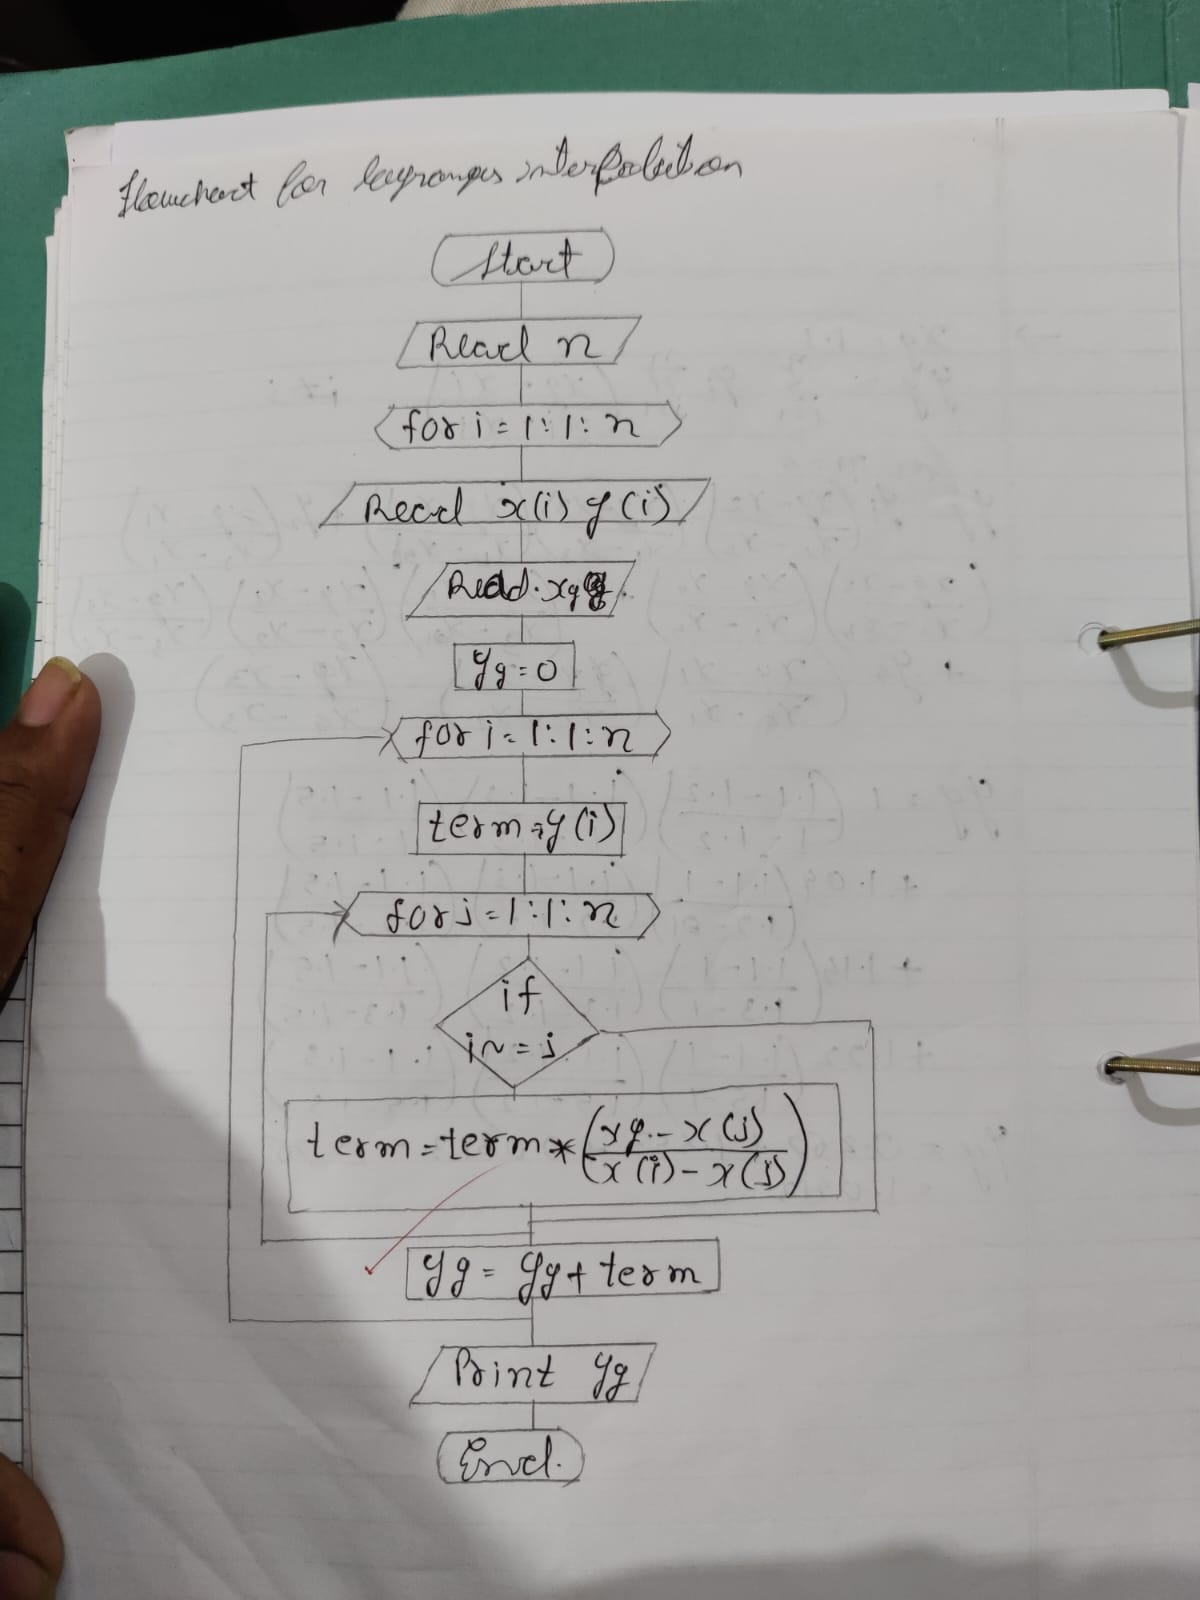 Flowchart for lagranges interpolation
Start
Read n
for i = 1:1:n
Read x(i) y(i)
Read xg
yg = 0
for i = 1:1:n
term = y(i)
for j = 1:1:n
if
i ~= j
term = term * (xg - x(j) / x(i) - x(j))
yg = yg + term
Print yg
End.